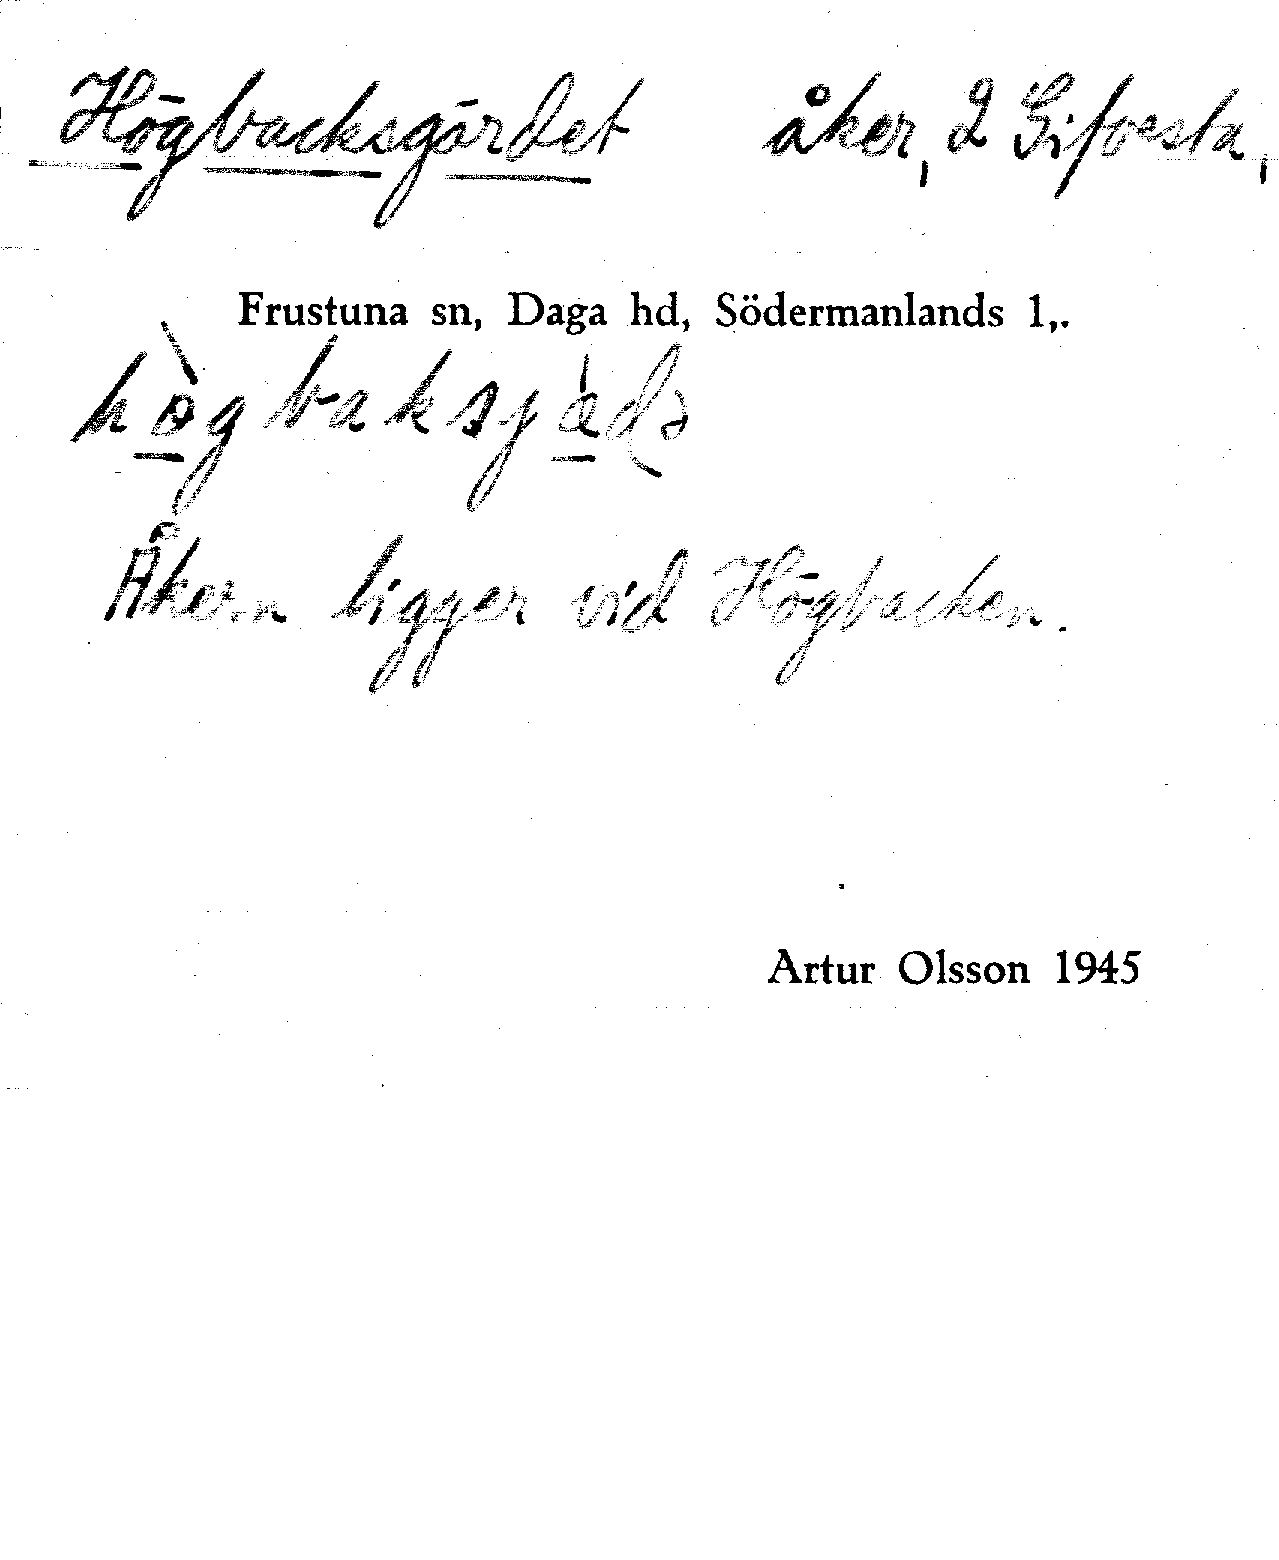 Högbacksgärdet åker, 2 Sifvesta,
Frustuna sn, Daga hd, Södermanlands l,.
Åkern ligger vid Högbacken.
Artur Olsson 1945